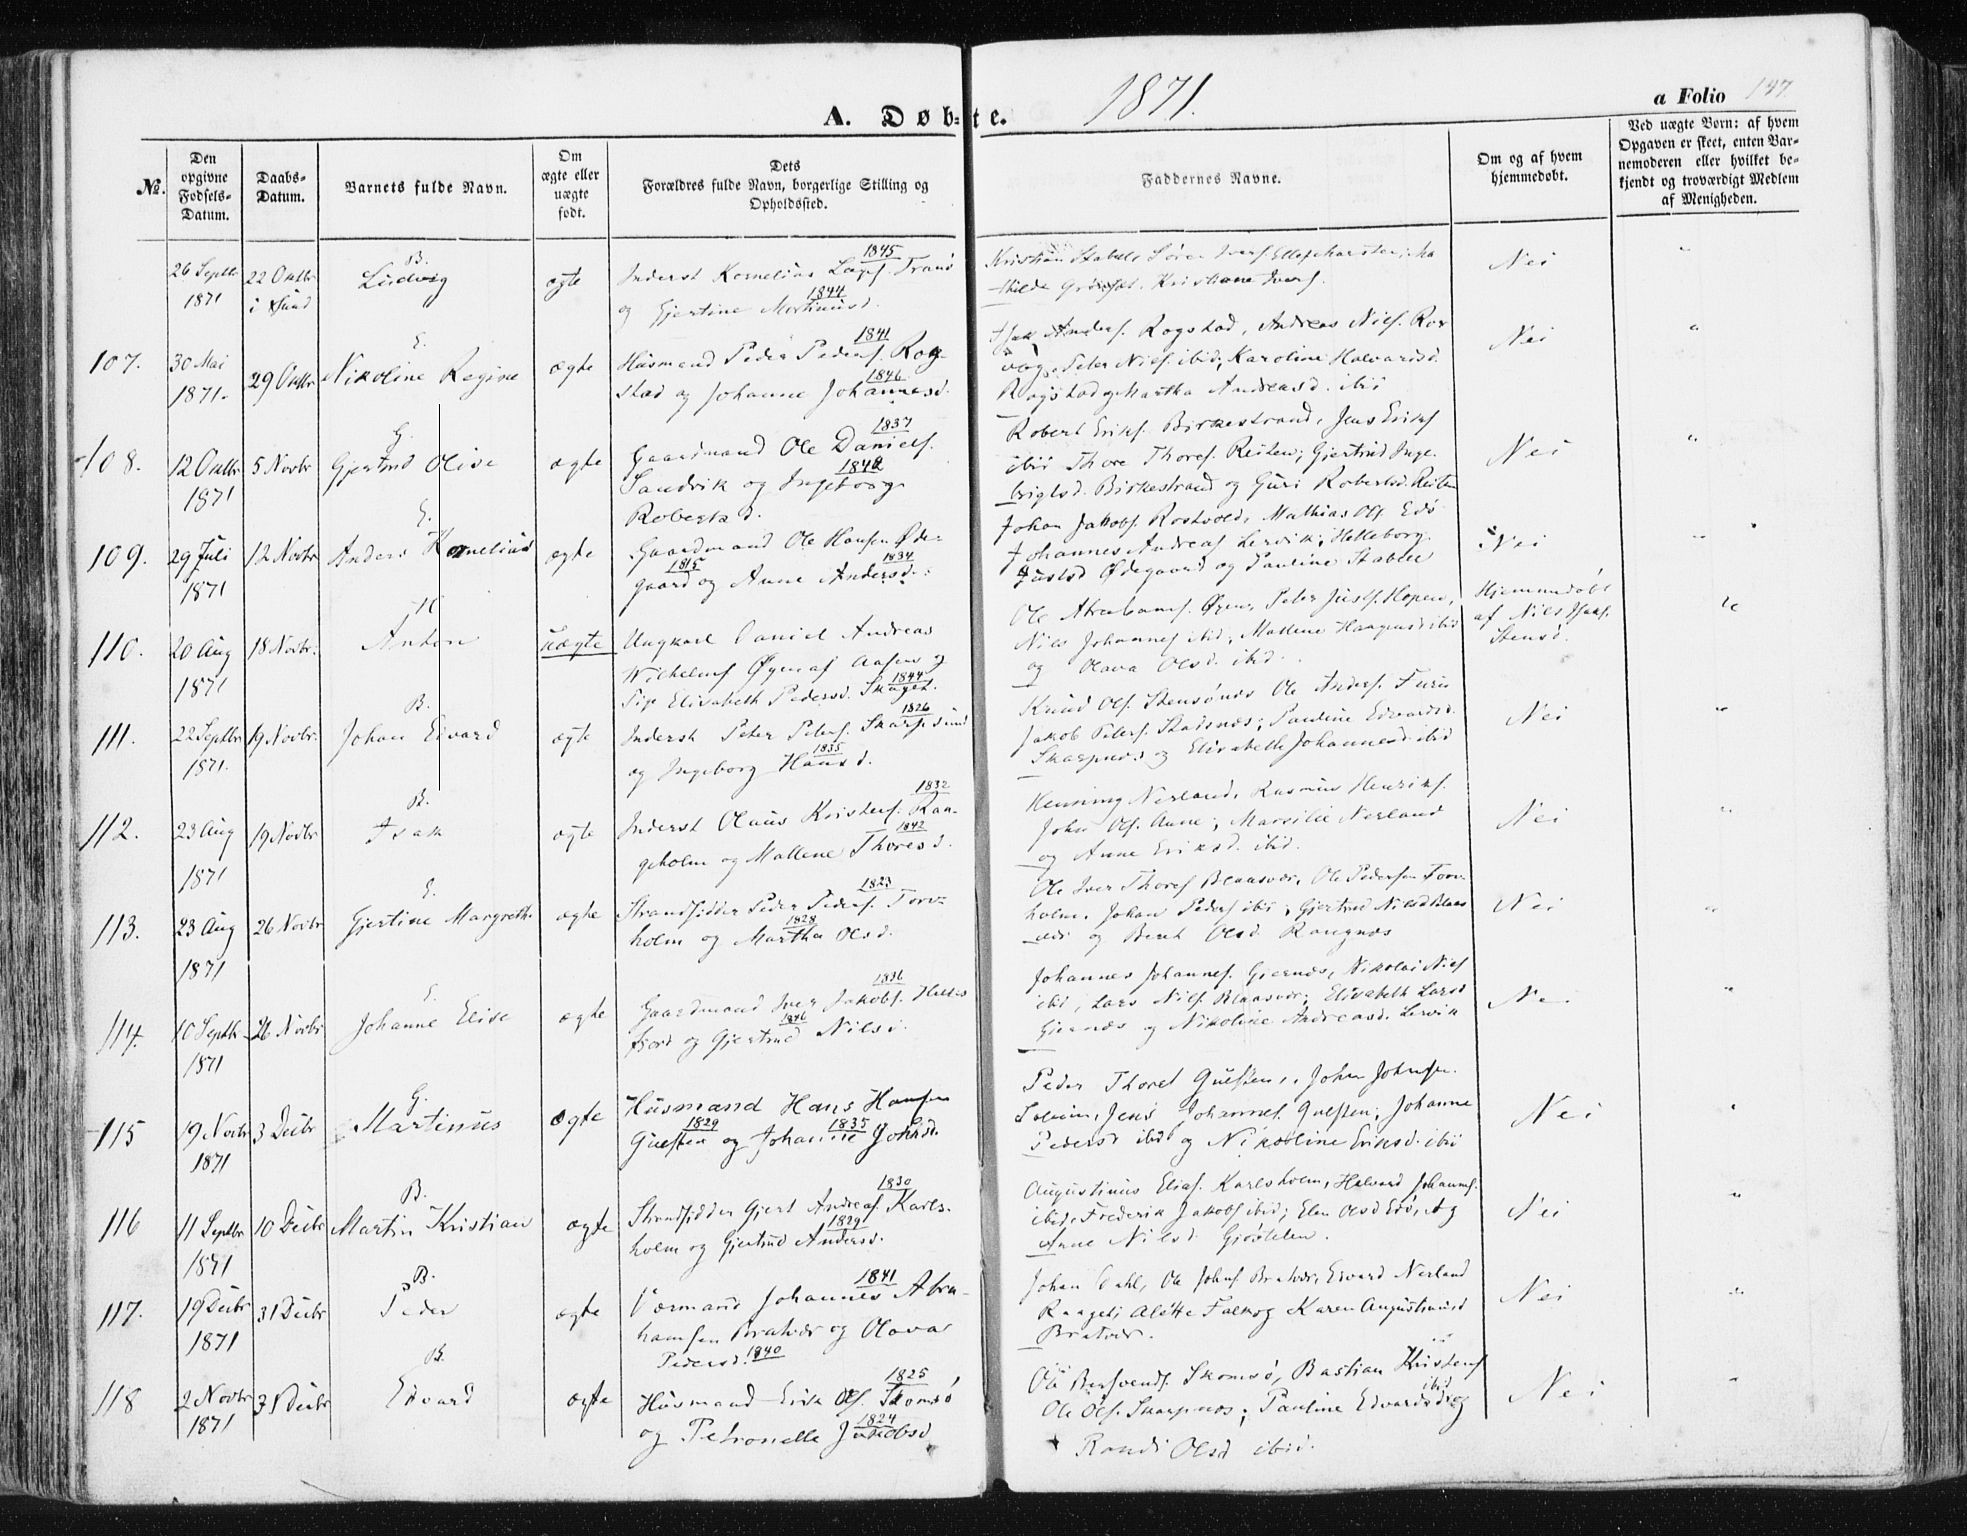 1871.
A. Døb-te.
a Folio 147
No.
Den opgivne Fødsels-Datum.
Daabs-Datum.
Barnets fulde Navn.
Om ægte eller uægte født.
Dets Forældres fulde Navn, borgerlige Stilling og Opholdssted.
Faddernes Navne.
Om og af hvem hjemmedøbt.
Ved uægte Børn: af hvem Opgaven er skeet, enten Barnemoderen eller hvilket bekjendt og troværdigt Medlem af Menigheden.
26 Septbr 1871
22 Octbr i Sund
B.
Ludvig
ægte
1845
Inderst Kornelius
og Gjertine Mortinusd.
1844
Kristian Stabel, Søren Ivers.
Kristiane Ivers.
Nei
107.
30 Mai 1871.
29 Octbr
E.
Nikoline Regine
ægte
1841
Husmand Peder Peders. Rog-
1846
stad og Johanne Johannesd.
Isak Anders. Rogstad, Andreas Niels. Ror
vog, Peter Niels. ibid; Karoline Halvardsd.
Rogstad og Martha Andreasd. ibid
Nei
108.
12 Octbr 1871
5 Novbr
G.
Gjertrud Olive
ægte
1837
Gaardmand Ole Daniels.
1842
Sandvik og Ingeborg
Robertsd.
Robert Eriks. Birkestrand, Jens Eriks
ibid Thore Thores. Reiten; Gjertrud Inge-
brigtsd. Birkestrand og Guri Robertsd. Reiten
Nei
109.
29 Juli 1871
12 Novbr
E.
Anders Kornelius
ægte
Gaardmand Ole Hansen Øde-
1815 1834
gaard og Anne Andersd.
Johan Jakobs. Rostvold, Mathias Ols. Edø
Johannes Andreas. Lervik; Helleborg
Justsd Ødegaard og Pauline Stabell
Nei
110.
20 Aug 1871
18 Novbr.
H
Anton
uægte
Ungkarl Daniel Andreas
Wilhelms. Øyen af Aasen og
1844
Pige Elisabeth Pedersd. Skaget.
Ole Abrahams. Øyen, Peter Justs. Hopen,
Niels Johannes. ibid; Mallene Haagensd ibid
og Olava Olsd. ibid.
Hjemmedøbt
af Niels Isaks.
Stensø.
111.
22 Septbr 1871.
19 Novbr.
B.
Johan Edvard
ægte
1826
Inderst Peter Peters. Skarpsund
1835
og Ingeborg Hansd.
Knud Ols. Stensønes Ole Anders.
Jakob Peters. Stadsnæs; Pauline Edvardsd.
Skarpnæs og Elisabeth Johannesd. ibid
Nei
112.
23 Aug 1871
19 Novbr
B.
Isak
ægte
1832
Inderst Olaus Kristens. Ran-
1842
geholm og Mallene Thoresd.
Henning Nerland, Rasmus Henriks.
John Ols. Aune; Marsilie Nerland
og Anne Eriksd. ibid.
Nei
113.
23 Aug 1871
26 Novbr
E.
Gjertine Margreth.
ægte
1823
Strandsidder Peder Peders. Torv-
1828
holm og Martha Olsd.
Ole Iver Thores Blaasvær, Ole Pedersen Torv-
holm, Johan Peders ibid; Gjertrud Nilsd Blaas
vær og Berit Olsd. Rangnæs
Nei
114.
10 Septbr 1871
26 Novbr
E.
Johanne Elise
ægte
1836
Gaardmand Iver Jakobs.
1846
fjord og Gjertrud Nilsd.
Johannes Johannes. Gjernæs, Nikolai Niels
ibid, Lars Niels. Blaasvær; Elisabeth Larsd
Gjernæs og Nikoline Andreasd. Lervik
Nei
115
19 Novbr 1871
3 Decbr
G.
Martinus
ægte
Husmand Hans Hansen
1829 1835
Gulsten og Johanne Johnsd.
Peder Thores Gulsten, John Johnsen
Jens Johannes. Gulsten; Johanne
Pedersd ibid og Nikoline Eriksd. ibid
Nei
116
11 Septbr 1871
10 Decbr
B.
Martin Kristian
ægte
1830
Strandsidder Gjert Andreas. Karls-
1829
holm og Gjertrud Andersd.
Augustinus Elias. Karlsholm, Halvard Johannes.
ibid, Frederik Jakobs ibid; Elen Olsd Edø, og
Anne Nilsd
Nei
117.
19 Decbr 1871
31 Decbr
B.
Peder
ægte
1841
Væmand Johannes Abra-
hamsen Bratvær og Olava
Pedersd. 1840
Johan Dahl, Ole Johns Bratvær, Edvard Nerland
Alette Falk og Karen Augustinusd
Bratvær.
Nei
118
2 Novbr 1871
31 Decbr
B.
Edvard
ægte
1825
Husmand Erik Ols. Skomsø
1824
og Petronelle Jakobsd
Ole Bersvends. Skomsø, Bastian Kristens
ibid
Ole Ols. Skarpnæs; Pauline Edvardsd og
Randi Olsd ibid.
Nei